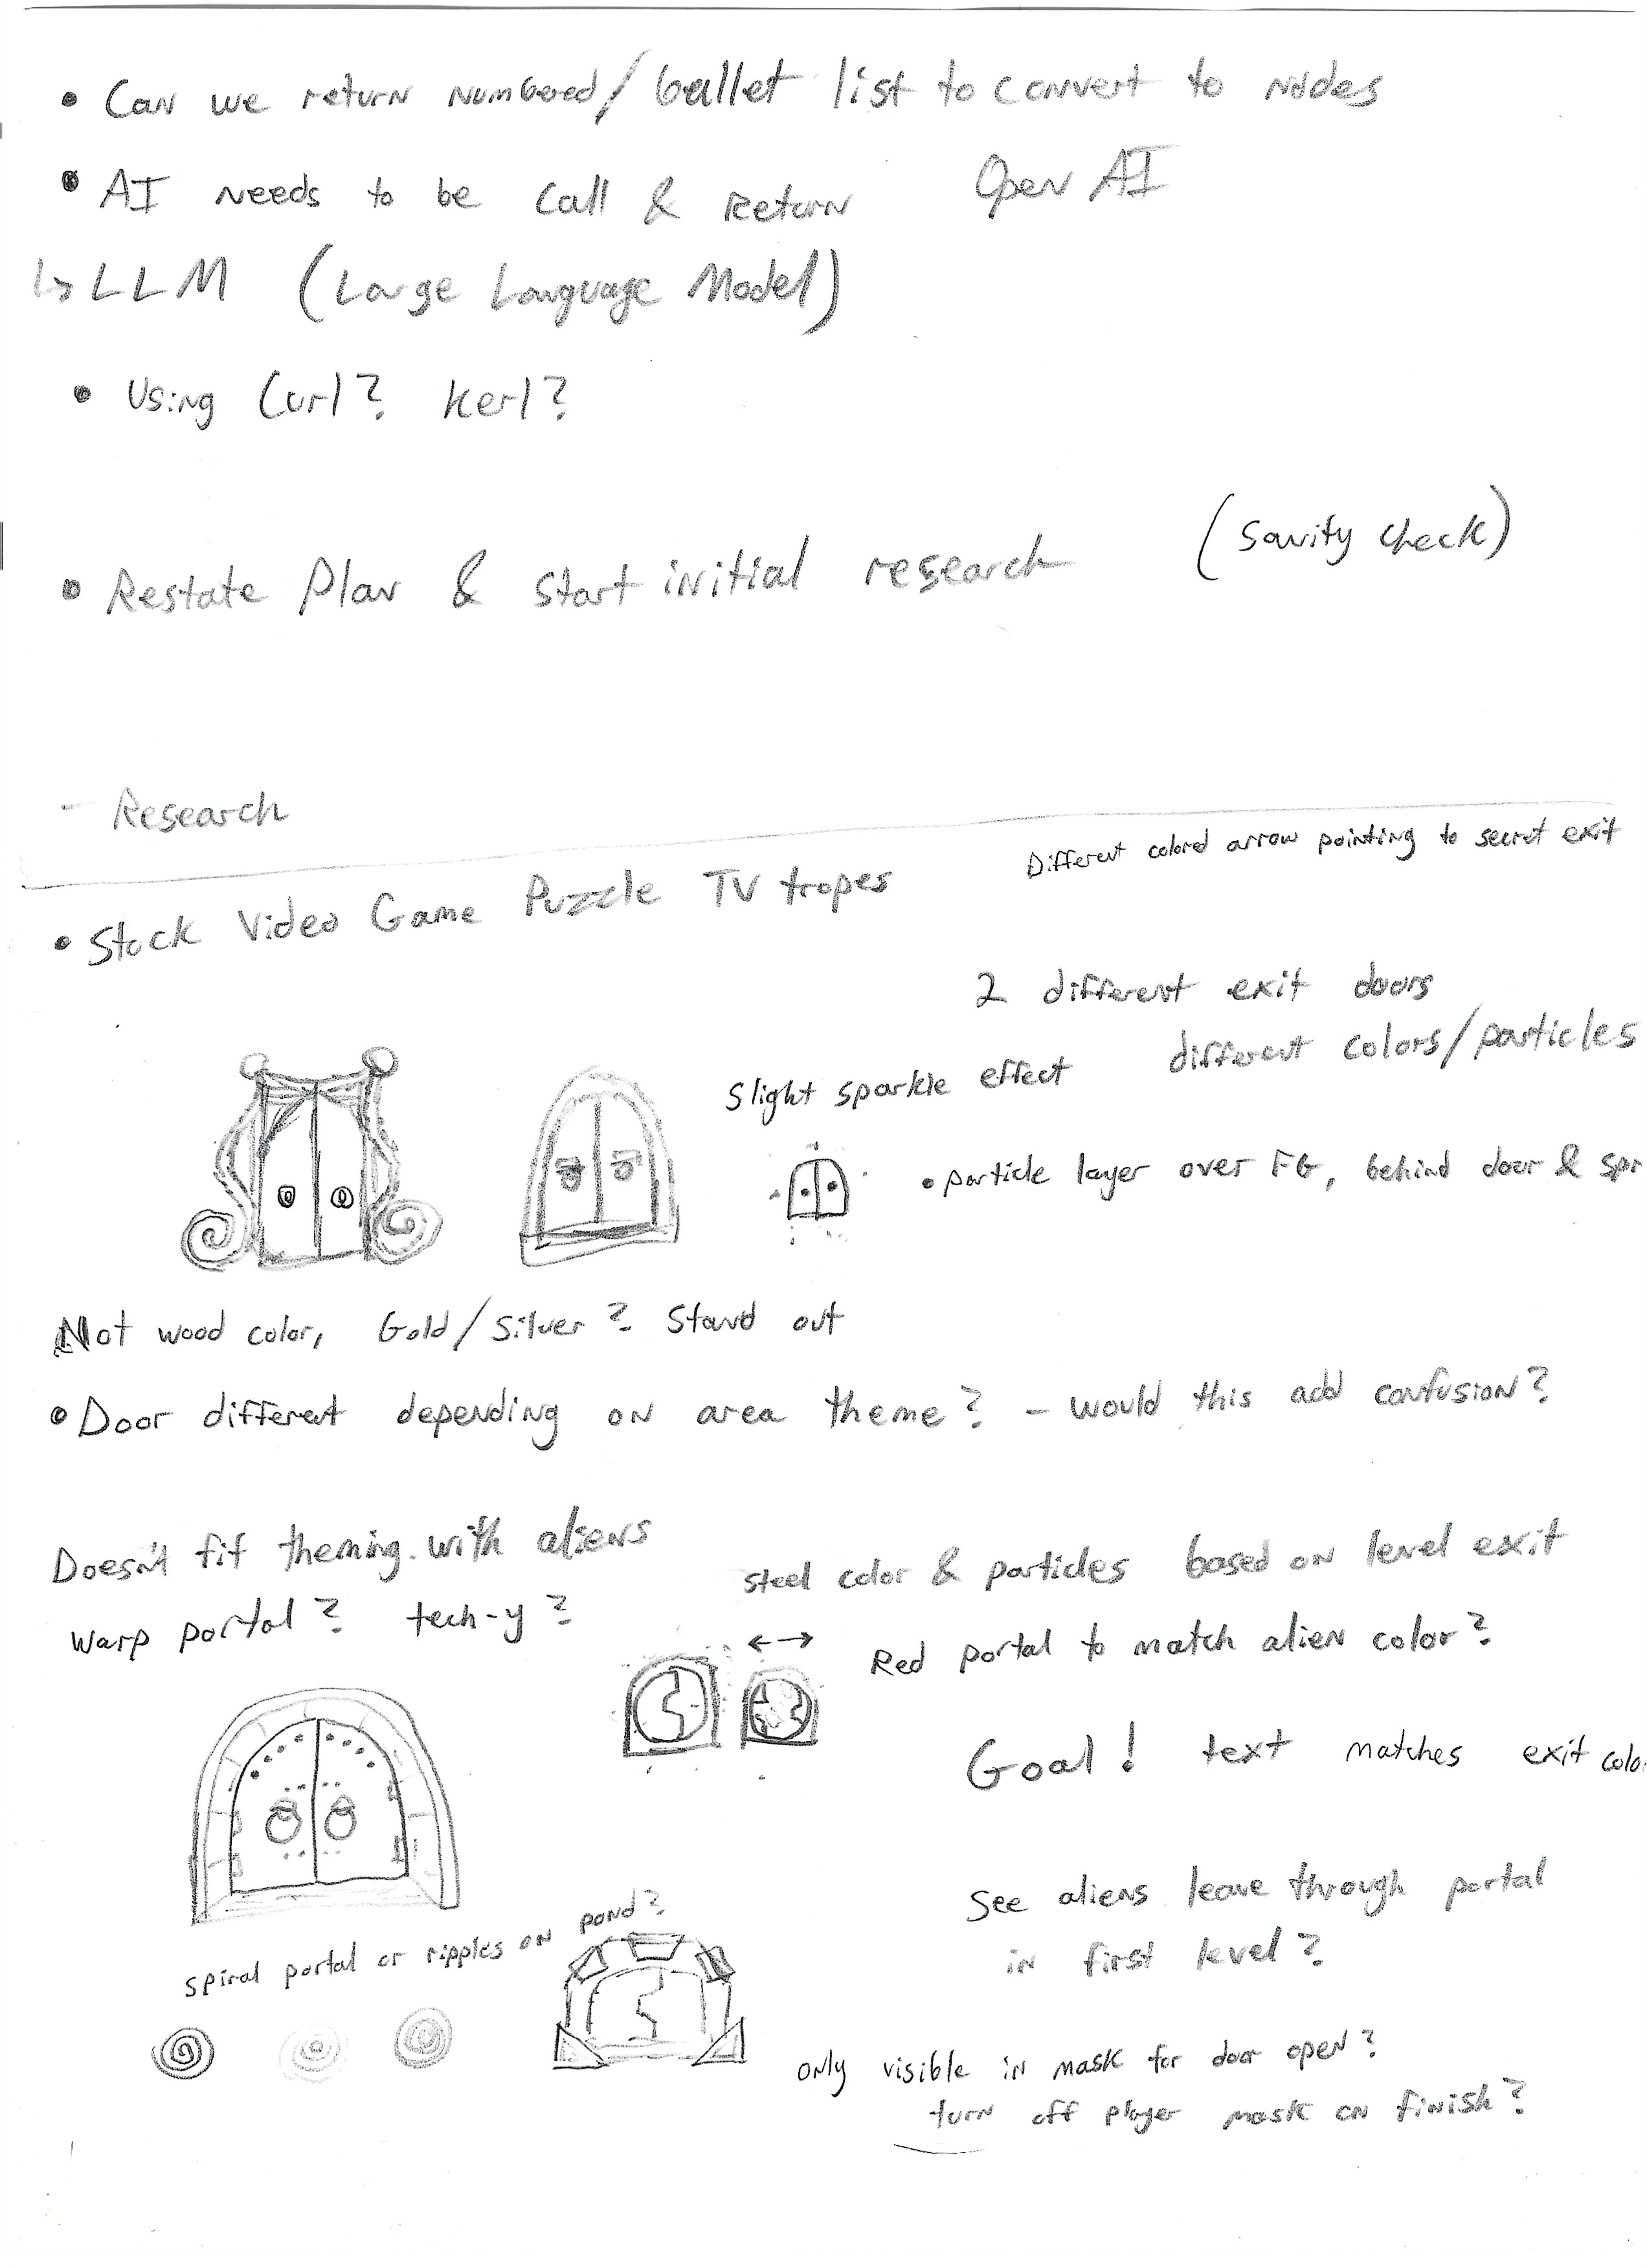 • Can we return numbered/bullet list to convert to nodes
• AI needs to be call & return
Open AI
↳ LLM (Large Language Model)
• Using Curl? Kerl?
(Sanity check)
• Restate Plan & start initial research
- Research
Different colored arrow pointing to secret exit
• Stock Video Game Puzzle TV tropes
2 different exit doors
different colors/particles
Slight sparkle effect
• particle layer over FG, behind door & spr
Not wood color, Gold/Silver? Stand out
• Door different depending on area theme? - would this add confusion?
Doesn't fit theming with aliens
warp portal? tech-y?
steel color & particles based on level exit
Red portal to match alien color?
Goal! text matches exit colo
See aliens leave through portal
in first level?
spiral portal or ripples on pond?
only visible in mask for door open?
turn off player mask on finish?